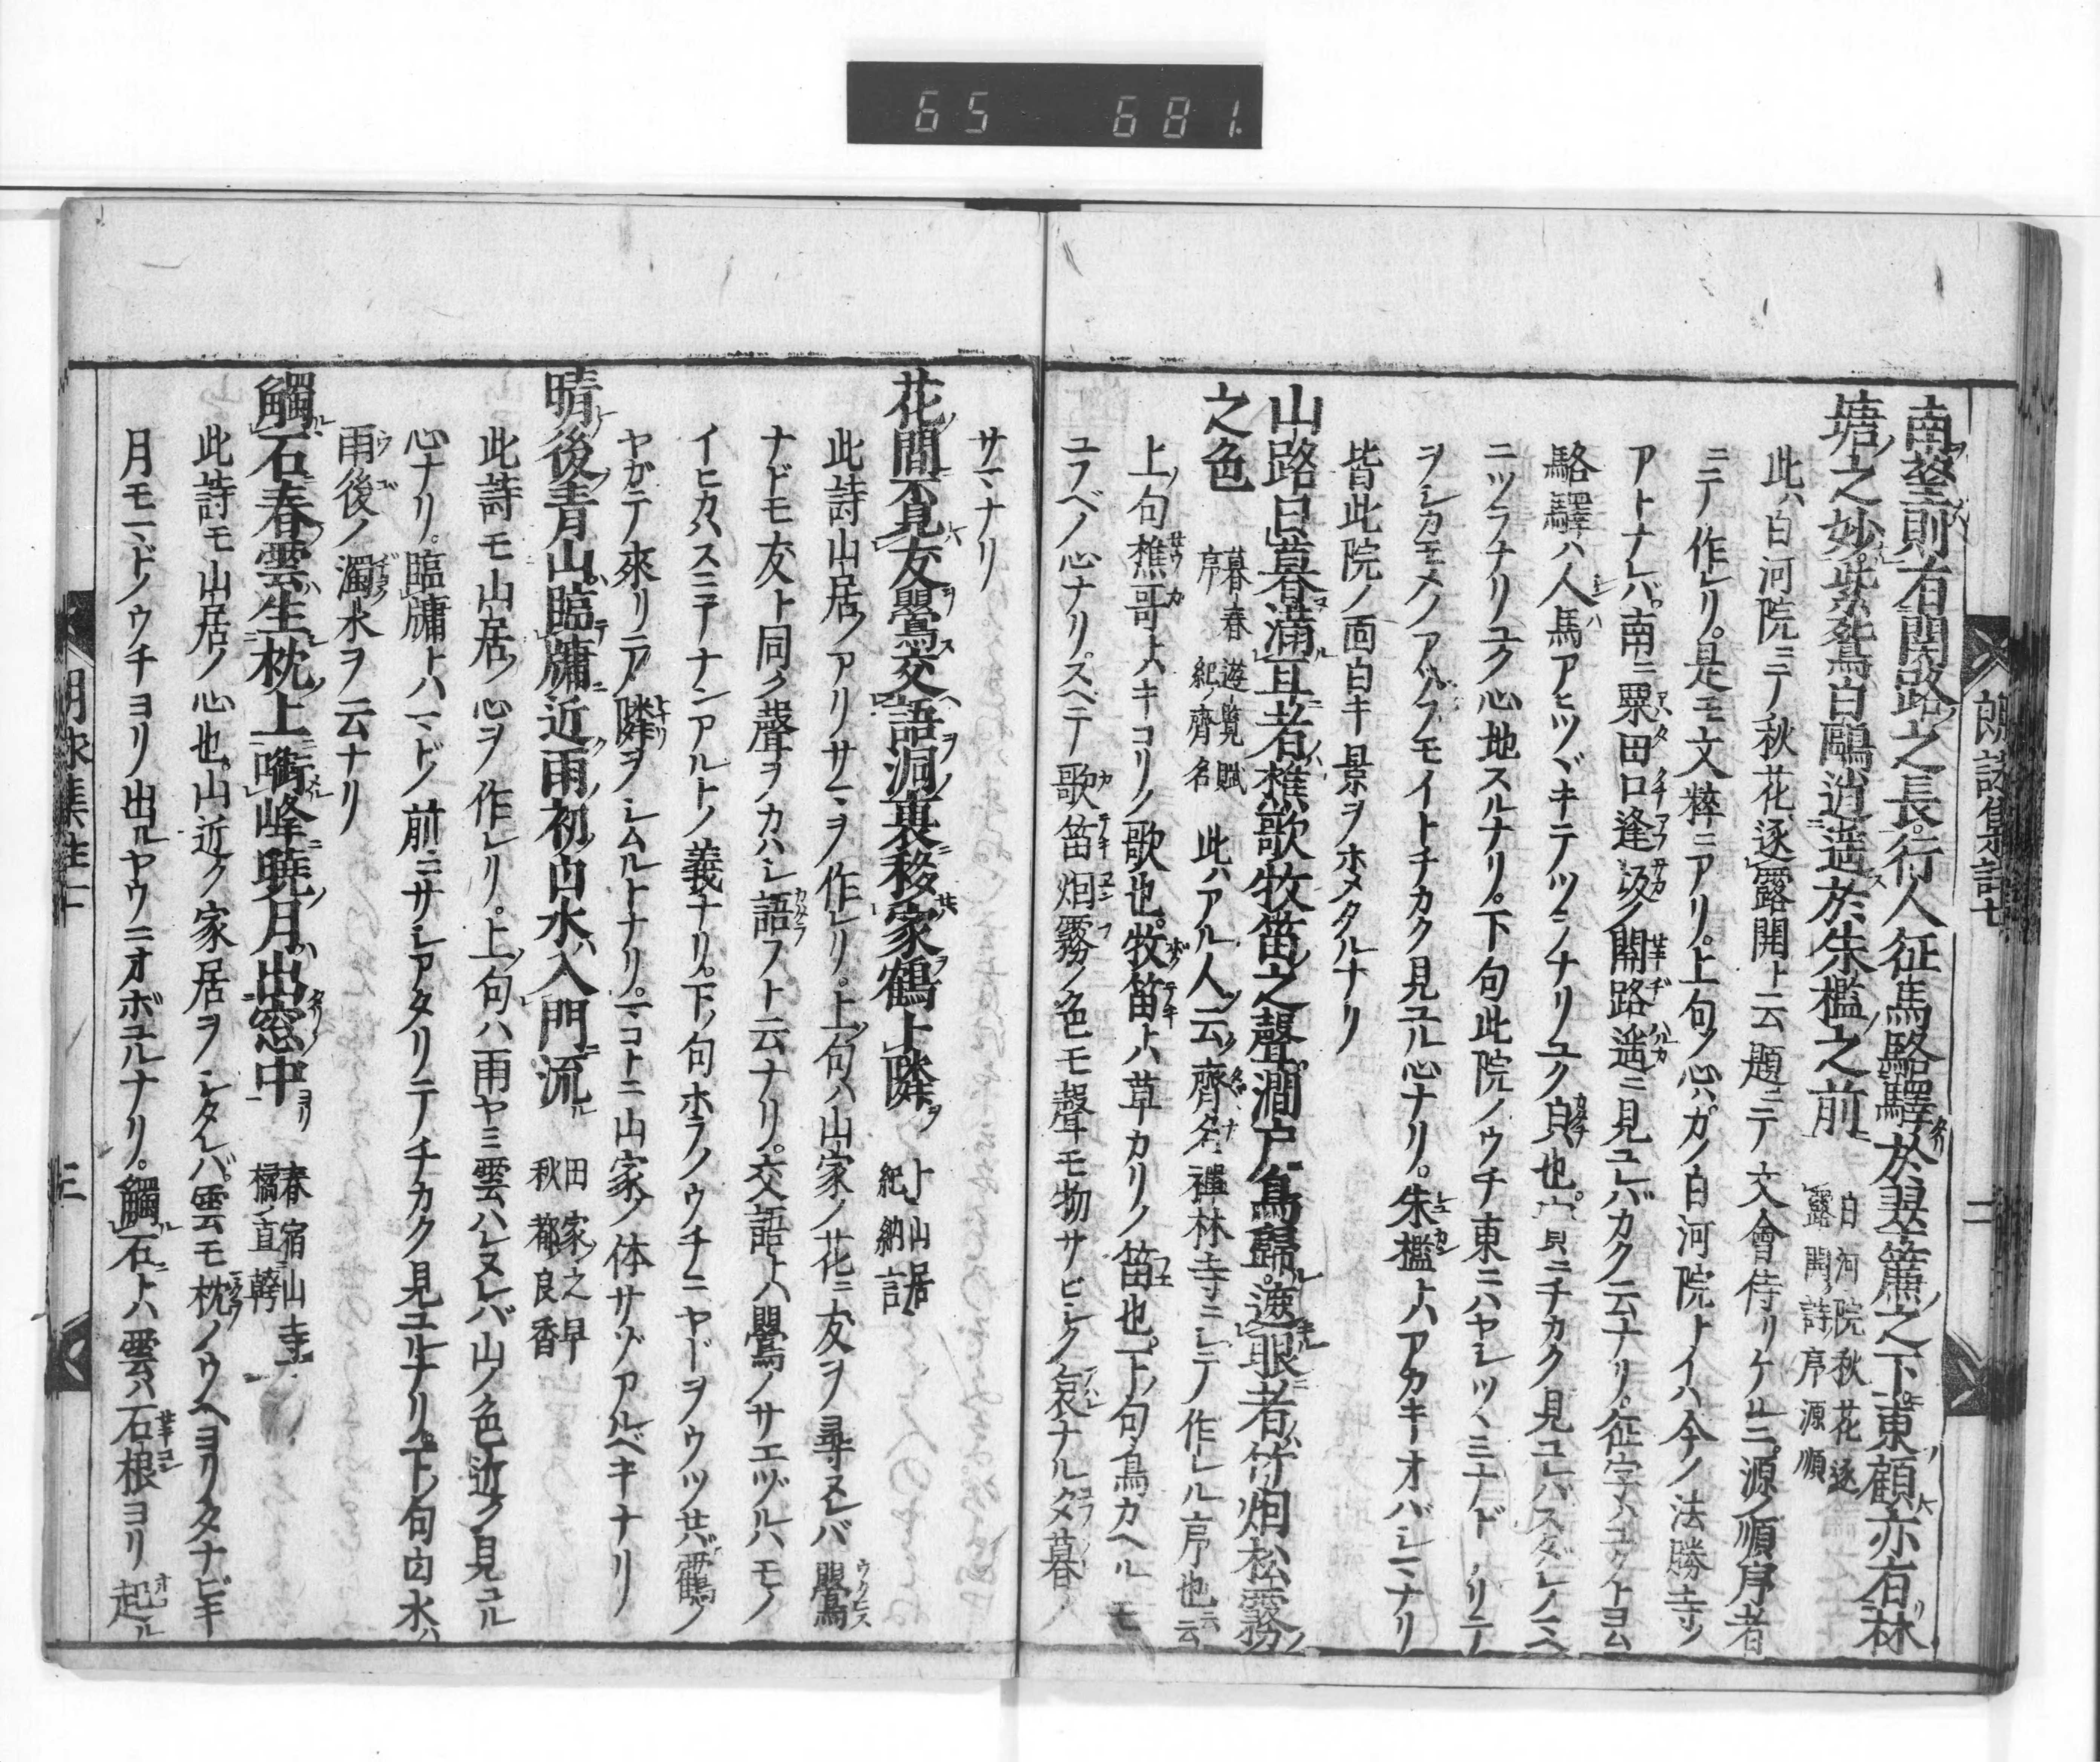 65 681.
朗詠集註七
二
南望則有關路之長行人征馬駱驛於翠簾之下東顧亦有林
塘之妙紫鴛白鷗逍遥於朱檻之前 白河院秋花逐露開詩序源順
此ハ白河院ニテ秋花逐露開ト云題ニテ文會侍リケルニ源ノ順序者
ニテ作レリ是モ文粹ニアリ上句ノ心ハカノ白河院トイハ今ノ法勝寺ノ
アトナレバ南ニ粟田口逢坂ノ關路遥ニ見ユレバカク云ナリ征字ハユクトヨム
駱驛ハ人馬アヒツヾキテツラナリユク貌也 ニチカク見ユレバスダレノマヘ
ニツラナリユク心地スルナリ下句此院ノウチ東ニハヤシツヽミナドノリテ
ヲシカモメノアソブモイトチカク見ユル心ナリ朱檻トハアカキオバシマナリ
皆此院ノ面白キ景ヲホメタルナリ
山路日暮滿耳者樵歌牧笛之聲澗戸鳥歸遮眼者竹烟松霧
之色 暮春遊覧賦序紀ノ齊名 此ハアル人ノ云齊名禪林寺ニシテ作レル序也云云
上句樵哥トハキコリノ歌也牧笛トハ草カリノ笛也下ノ句鳥カヘルモ
ユフベノ心ナリスベテ歌笛烟霧ノ色モ聲モ物サビシク哀ナル夕暮ノ
サマナリ
花間不見友鶯交語洞裏移家鶴卜隣 卜山居紀納言
此詩山居ノアリサマヲ作レリ上句ハ山家ノ花ニ友ヲ尋ヌレバ鶯
ナドモ友ト同ク聲ヲカハシ語フト云ナリ交語トハ鶯ノサエヅルハモノ
イヒカハスニテナンアルトノ義ナリ下ノ句ホラノウチニヤドヲウツセバ靏ノ
ヤガテ來リテ隣ヲシムルトナリマコトニ山家ノ体サゾアルベキナリ
晴後青山臨牗近雨初白水入門流 田家之早秋都良香
此詩モ山居ノ心ヲ作レリ上句ハ雨ヤミ雲ハレヌレバ山ノ色近ク見ユル
心ナリ臨牗トハマドノ前ニサシアタリテチカク見ユルナリ下ノ句白水ハ
雨後ノ濁水ヲ云ナリ
觸石春雲生枕上㗸峰曉月出窓中 春宿山寺橘ノ直幹
此詩モ山居ノ心也山近ク家居ヲシタレバ雲モ枕ノウヘヨリタナビキ
月モマドノウチヨリ出ルヤウニオボユルナリ觸石トハ雲ハ石根ヨリ起ル
三